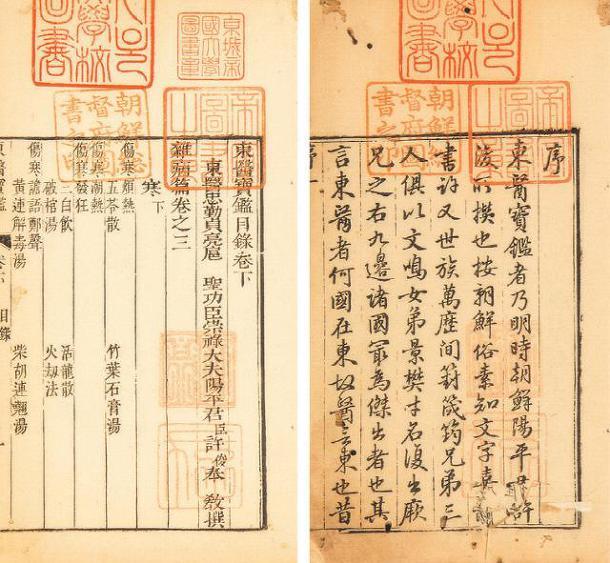 序
東醫寶鑑者乃明時朝鮮陽平君許
浚所撰也按朝鮮俗素知文字喜讀
書許又世族萬歷間葑筬筠兄弟三
人俱以文鳴女弟景樊才名復出厥
兄之右九邊諸國最為傑出者也其
言東醫者何國在東故醫言東也昔
序 一
東醫寶鑑目錄卷下
忠勤貞亮扈 聖功臣崇祿大夫陽平君臣許浚奉 敎撰
雜病篇卷之三
寒下
傷寒煩熱
五苓散 竹葉石膏湯
傷寒潮熱
傷寒發狂
三白飲 活龍散
破棺湯 火劫法
傷寒譫語鄭聲
黃連解毒湯 柴胡連翹湯
東醫寶鑑 目錄